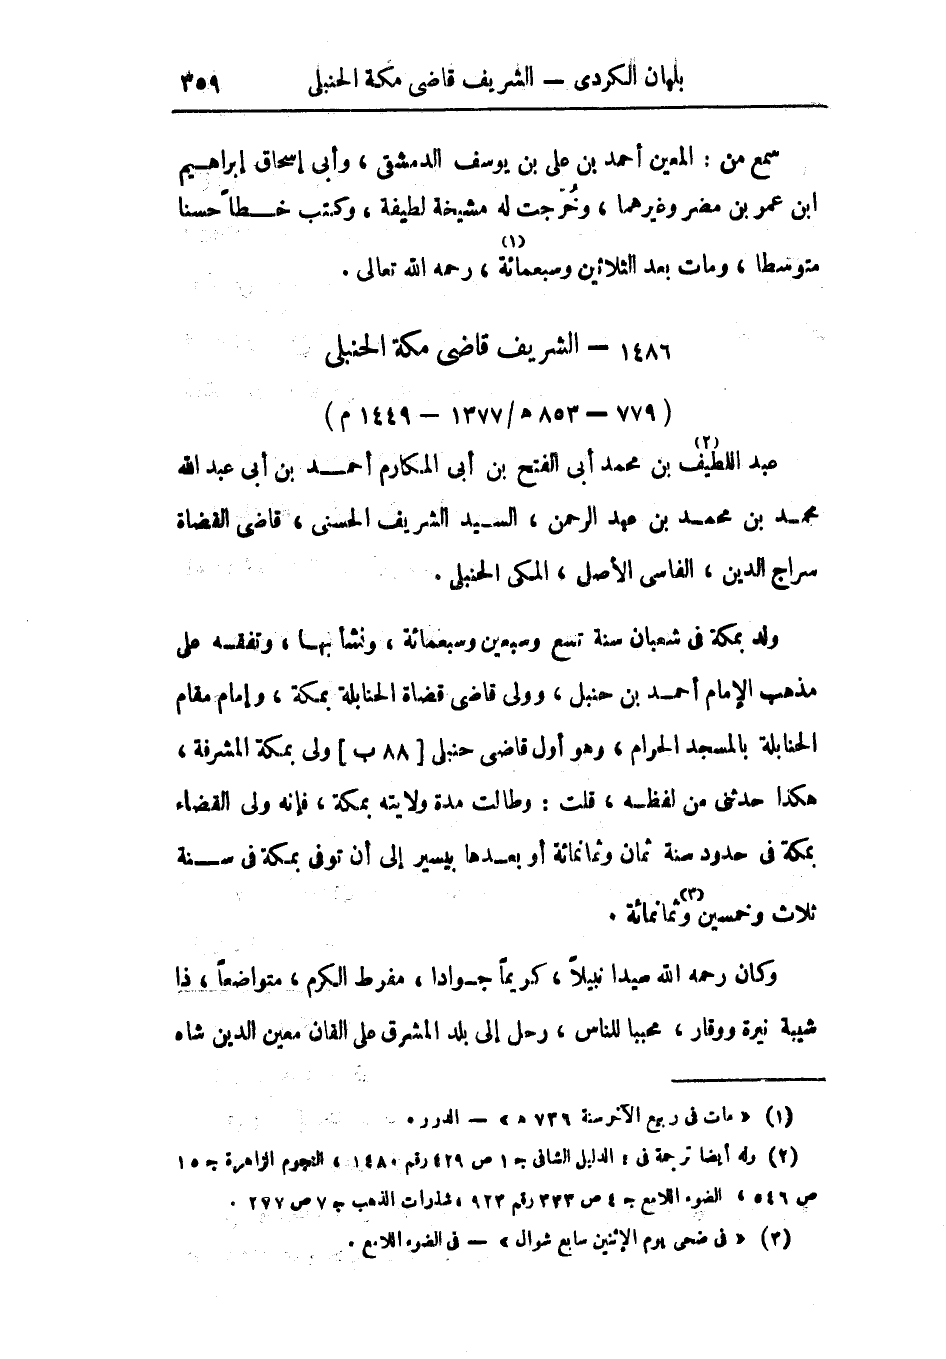 بلبان الكردى — الشريف قاضى مكة الحنبلى ٣٥٩
سمع من : المعين أحمد بن على بن يوسف الدمشقى ، وأبى إسحاق إبراهيم
ابن عمر بن مضر وغيرهما ، وخُرّجت له مشيخة لطيفة ، وكتب خطاً حسنا
متوسطا ، ومات بعد الثلاثين وسبعمائة (١) ، رحمه الله تعالى .
١٤٨٦ — الشريف قاضى مكة الحنبلى
( ٧٧٩ — ٨٥٣ ه/ ١٣٧٧ — ١٤٤٩ م )
عبد اللطيف (٢) بن محمد أبى الفتح بن أبى المكارم أحمد بن أبى عبد الله
محمد بن محمد بن عبد الرحمن ، السيد الشريف الحسنى ، قاضى القضاة
سراج الدين ، الفاسى الأصل ، المكى الحنبلى .
ولد بمكة فى شعبان سنة تسع وسبعين وسبعمائة ، ونشأ بها ، وتفقه على
مذهب الإمام أحمد بن حنبل ، وولى قاضى قضاة الحنابلة بمكة ، وإمام مقام
الحنابلة بالمسجد الحرام ، وهو أول قاضى حنبلى [ ٨٨ ب ] ولى بمكة المشرفة ،
هكذا حدثنى من لفظه ، قلت : وطالت مدة ولايته بمكة ، فإنه ولى القضاء
بمكة فى حدود سنة ثمان وثمانمائة أو بعدها بيسير إلى أن توفى بمكة فى سنة
ثلاث وخمسين وثمانمائة (٣) .
وكان رحمه الله صيدا نبيلاً ، كريماً جوادا ، مفرط الكرم ، متواضعاً ، ذا
شيبة نيرة ووقار ، محببا للناس ، رحل إلى بلد المشرق على القان معين الدين شاه
(١) « مات فى ربيع الآخر سنة ٧٣٦ ه » — الدرر .
(٢) وله أيضا ترجمة فى : الدليل الشافى ج ١ ص ٤٢٩ رقم ١٤٨٠ ، النجوم الزاهرة ج ١٥
ص ٥٤٦ ، الضوء اللامع ج ٤ ص ٣٣٣ رقم ٩٢٣ ، شذرات الذهب ج ٧ ص ٢٧٧ .
(٣) « فى ضحى يوم الإثنين سابع شوال » — فى الضوء اللامع .